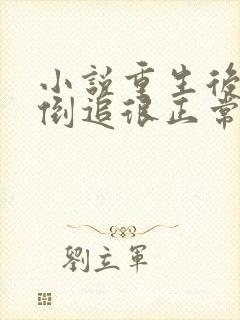 小説重生後
倒追很正常
劉立軍